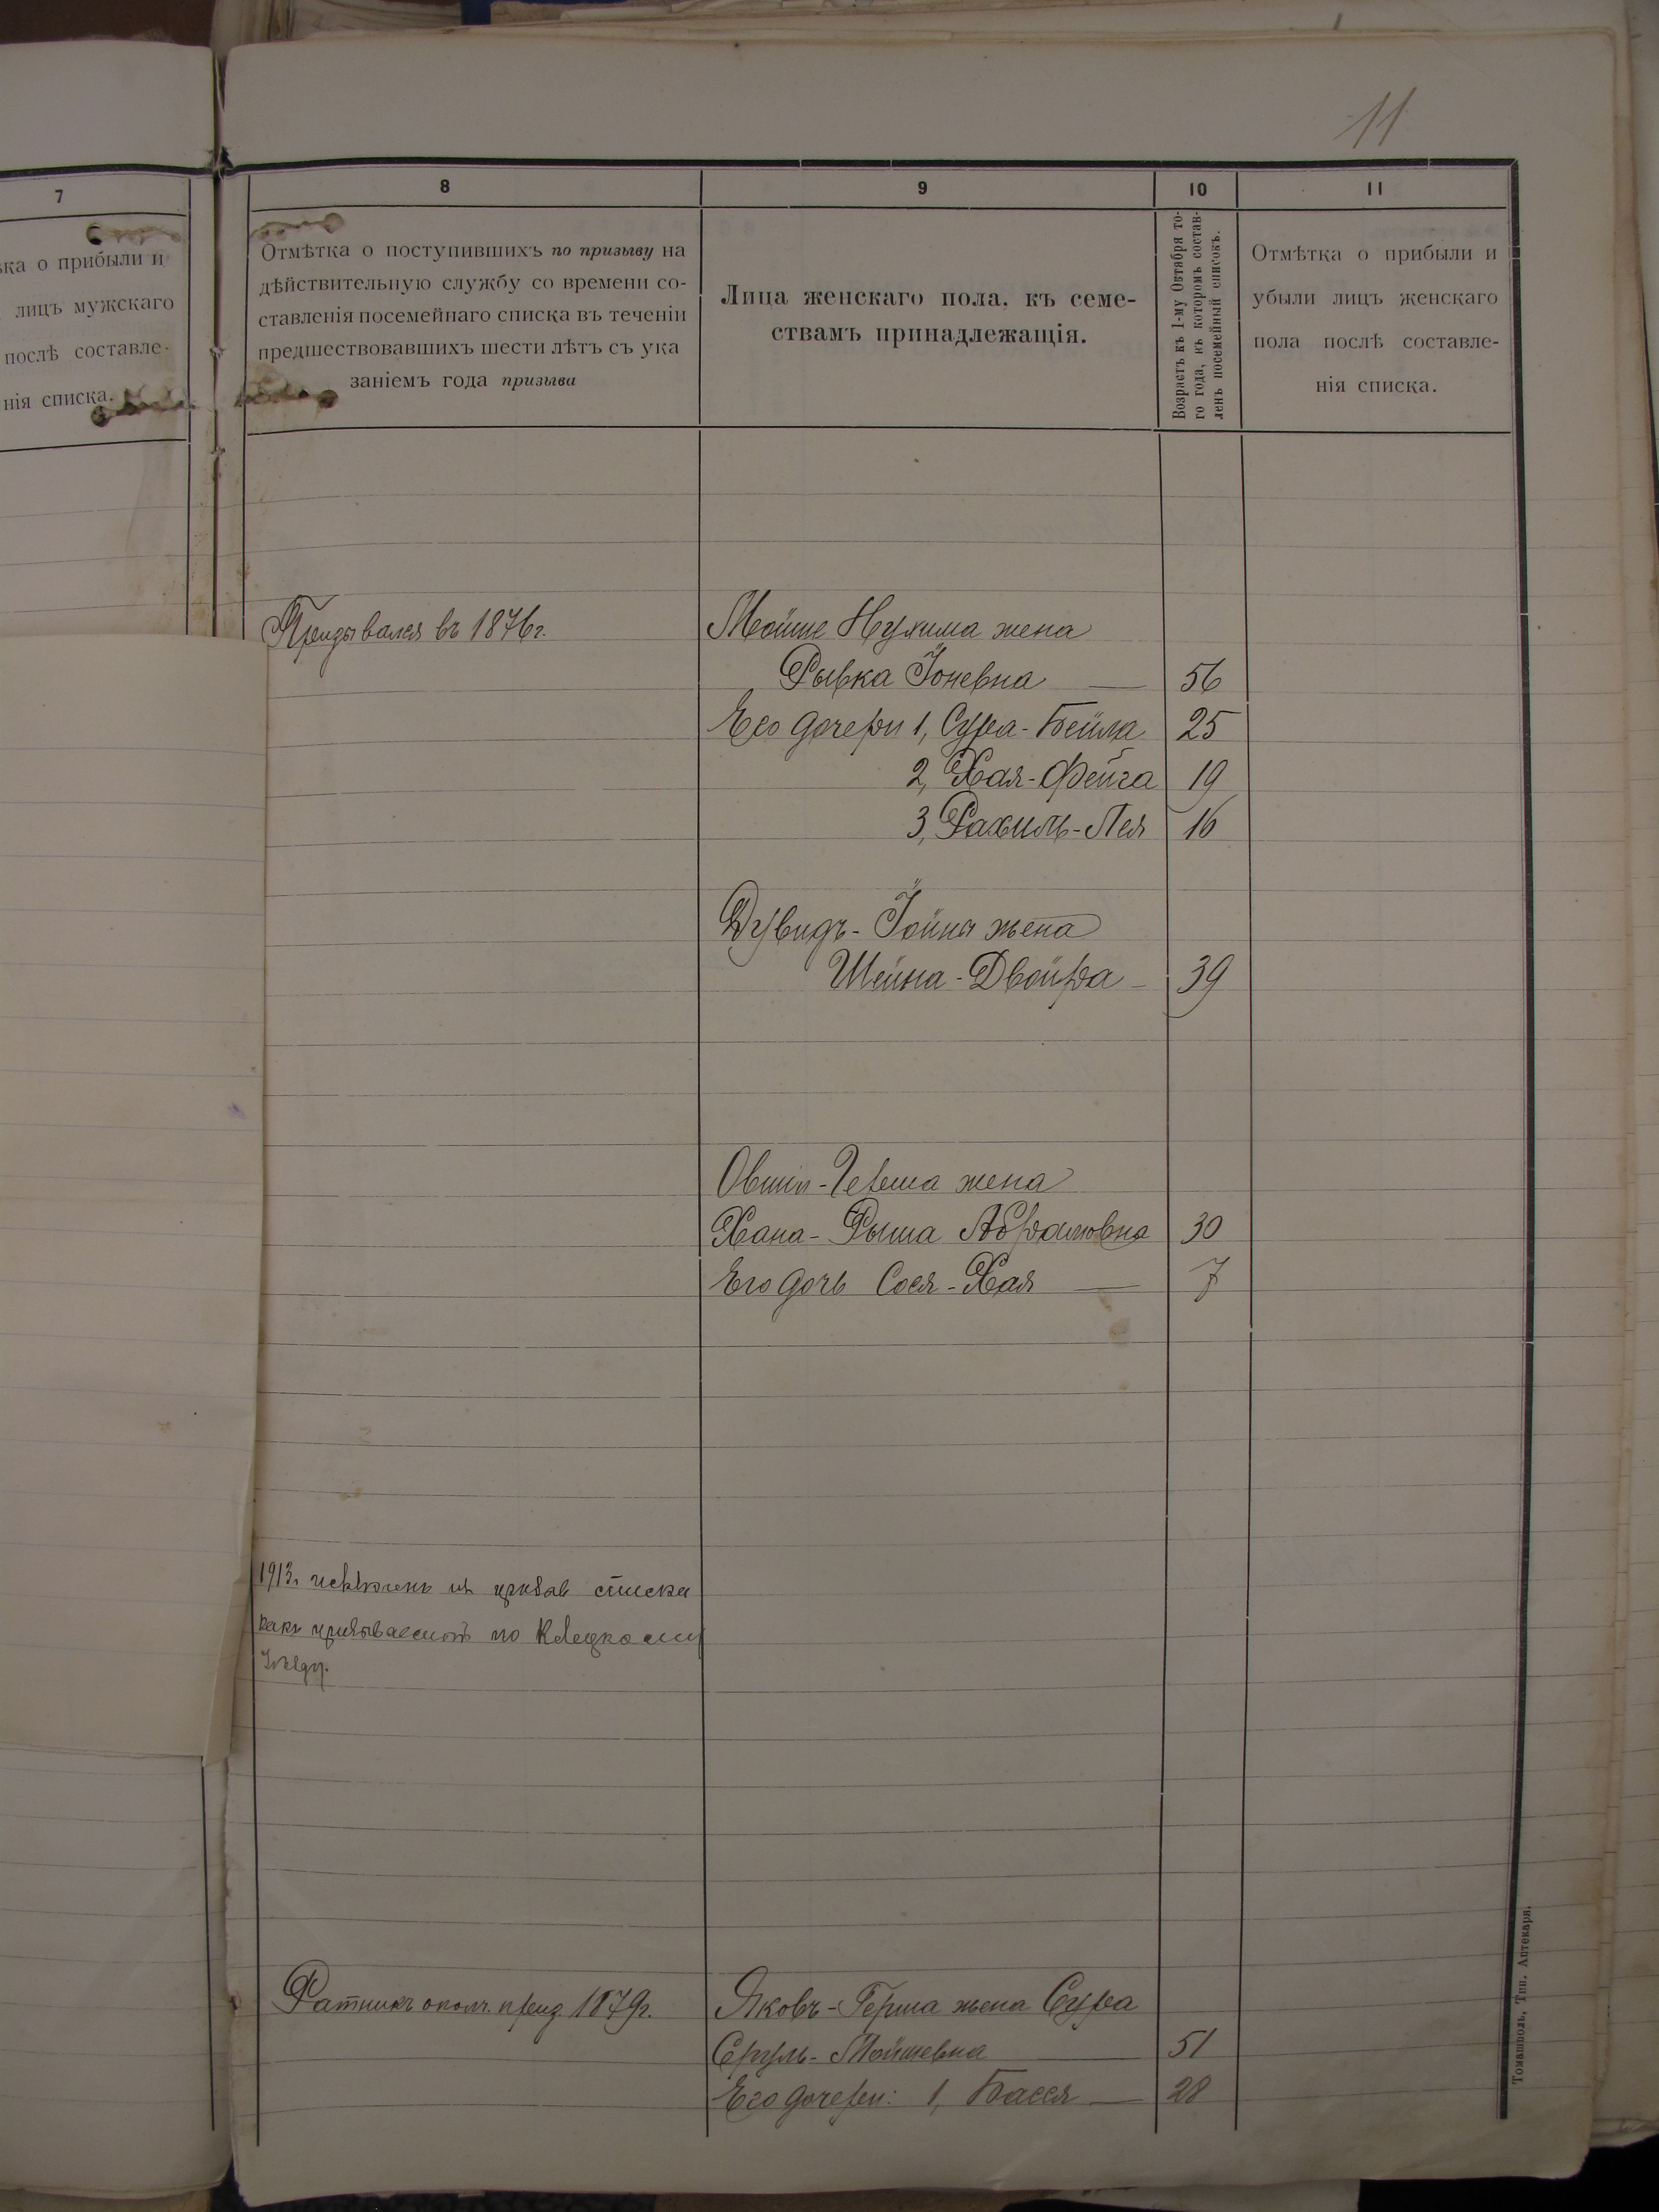 11
7
ка о прибыли и
лицъ мужскаго
послѣ составле-
нія списка.
8
Отмѣтка о поступившихъ по призыву на
дѣйствительную службу со времени со-
ставленія посемейнаго списка въ теченіи
предшествовавшихъ шести лѣтъ съ ука
заніемъ года призыва
9
Лица женскаго пола, къ семе-
ствамъ принадлежащія.
10
Возрастъ къ 1-му Октября то-
го года, въ которомъ состав-
ленъ посемейный списокъ.
11
Отмѣтка о прибыли и
убыли лицъ женскаго
пола послѣ составле-
нія списка.
Призывался въ 1876г.
Мойше Нухима жена
Рывка Іоневна — 56
Его дочери 1, Сура-Бейла 25
2, Хая-Фейга 19
3, Рахиль-Лея 16
Дувидъ-Іойны жена
Шейна-Двойра - 39
Овшія-Герша жена
Хана-Рыша Абрамовна 30
Его дочь Сося-Хая — 7
1913г исключенъ изъ призыв списка
какъ призываемый по
уѣзду.
Ратникъ ополч. приз. 1879г.
Яковъ-Герша жена Сура
Сруль-Мойшевна — 51
Его дочери: 1, Бася — 28
Томашполь, Тип. Аптекаря.